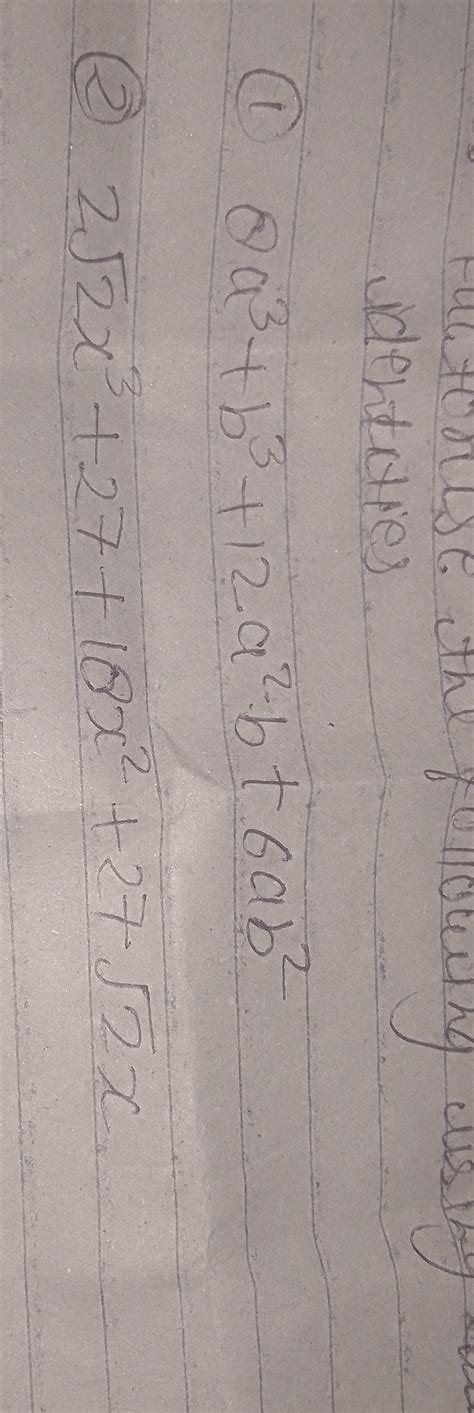 factorise the following using
identities
① 8a³ + b³ + 12a²b + 6ab²
② 2√2x³ + 27 + 18x² + 27√2x